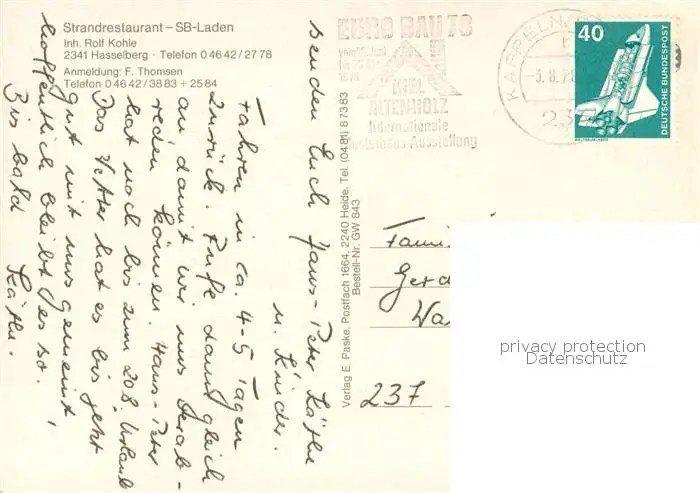 Strandrestaurant – SB-Laden
Inh. Rolf Kohle
2341 Hasselberg · Telefon 0 46 42 / 27 78
Anmeldung: F. Thomsen
Telefon 0 46 42 / 38 83 + 25 84
senden Euch Hans-Peter Käthe
u. Kinder.
Fahren in ca. 4-5 Tagen
zurück. Rufe dann gleich
an damit wir uns verab-
reden können. Hans-Peter
hat noch bis zum 20.8. Urlaub
Das Wetter hat es bis jetzt
gut mit uns gemeint,
hoffentlich bleibt es so.
Bis bald Käthe.
Verlag E. Paske, Postfach 1664, 2240 Heide, Tel. (0481) 873 83
Bestell-Nr. GW 843
EURO BAU 78
KIEL
ALTENHOLZ
Internationale
Musterhaus-Ausstellung
KAPPELN
-3.8.78
40
DEUTSCHE BUNDESPOST
WELTRAUMLABOR
Fami
Gerd
Wa
237
privacy protection
Datenschutz